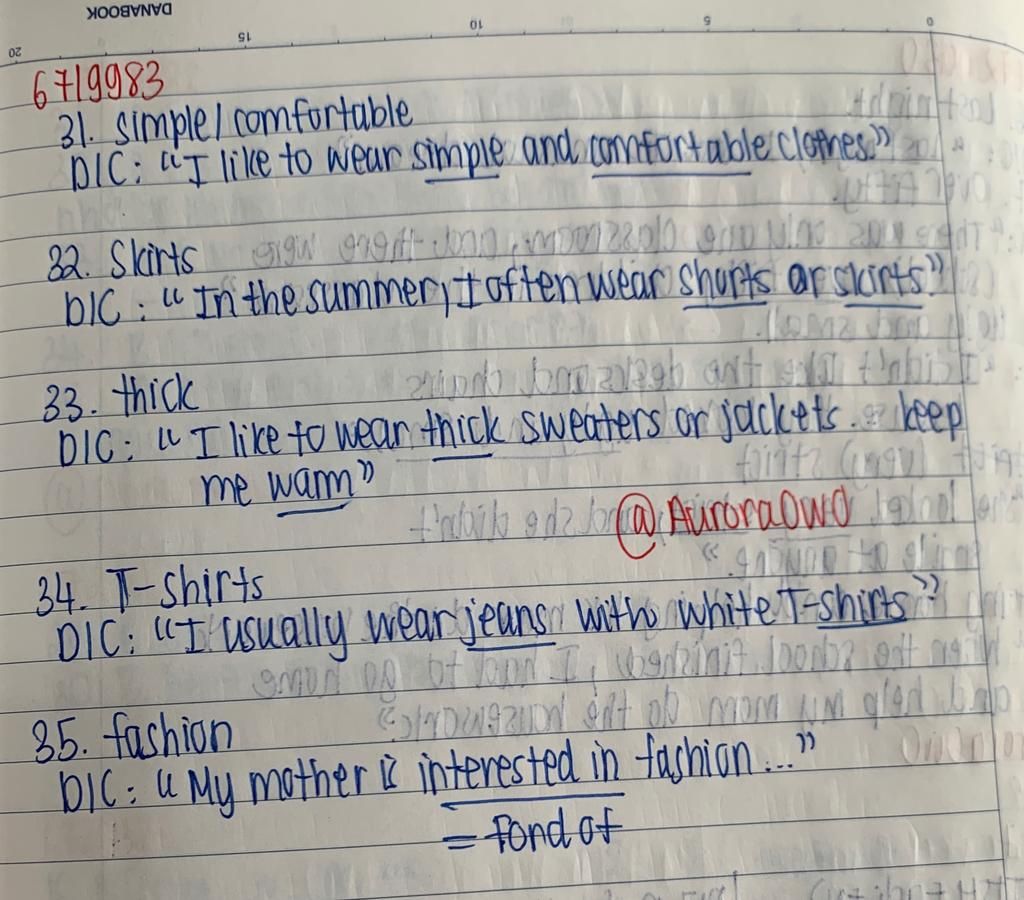 DANABOOK
20 15 10 5 0
6719983
31. simple/comfortable
DIC: "I like to wear simple and comfortable clothes."
32. Skirts
DIC: "In the summer, I often wear shorts or skirts"
33. thick
DIC: "I like to wear thick sweaters or jackets. keep
me warm"
@AuroraOwO
34. T-shirts
DIC: "I usually wear jeans with white T-shirts"
35. fashion
DIC: "My mother is interested in fashion..."
= fond of